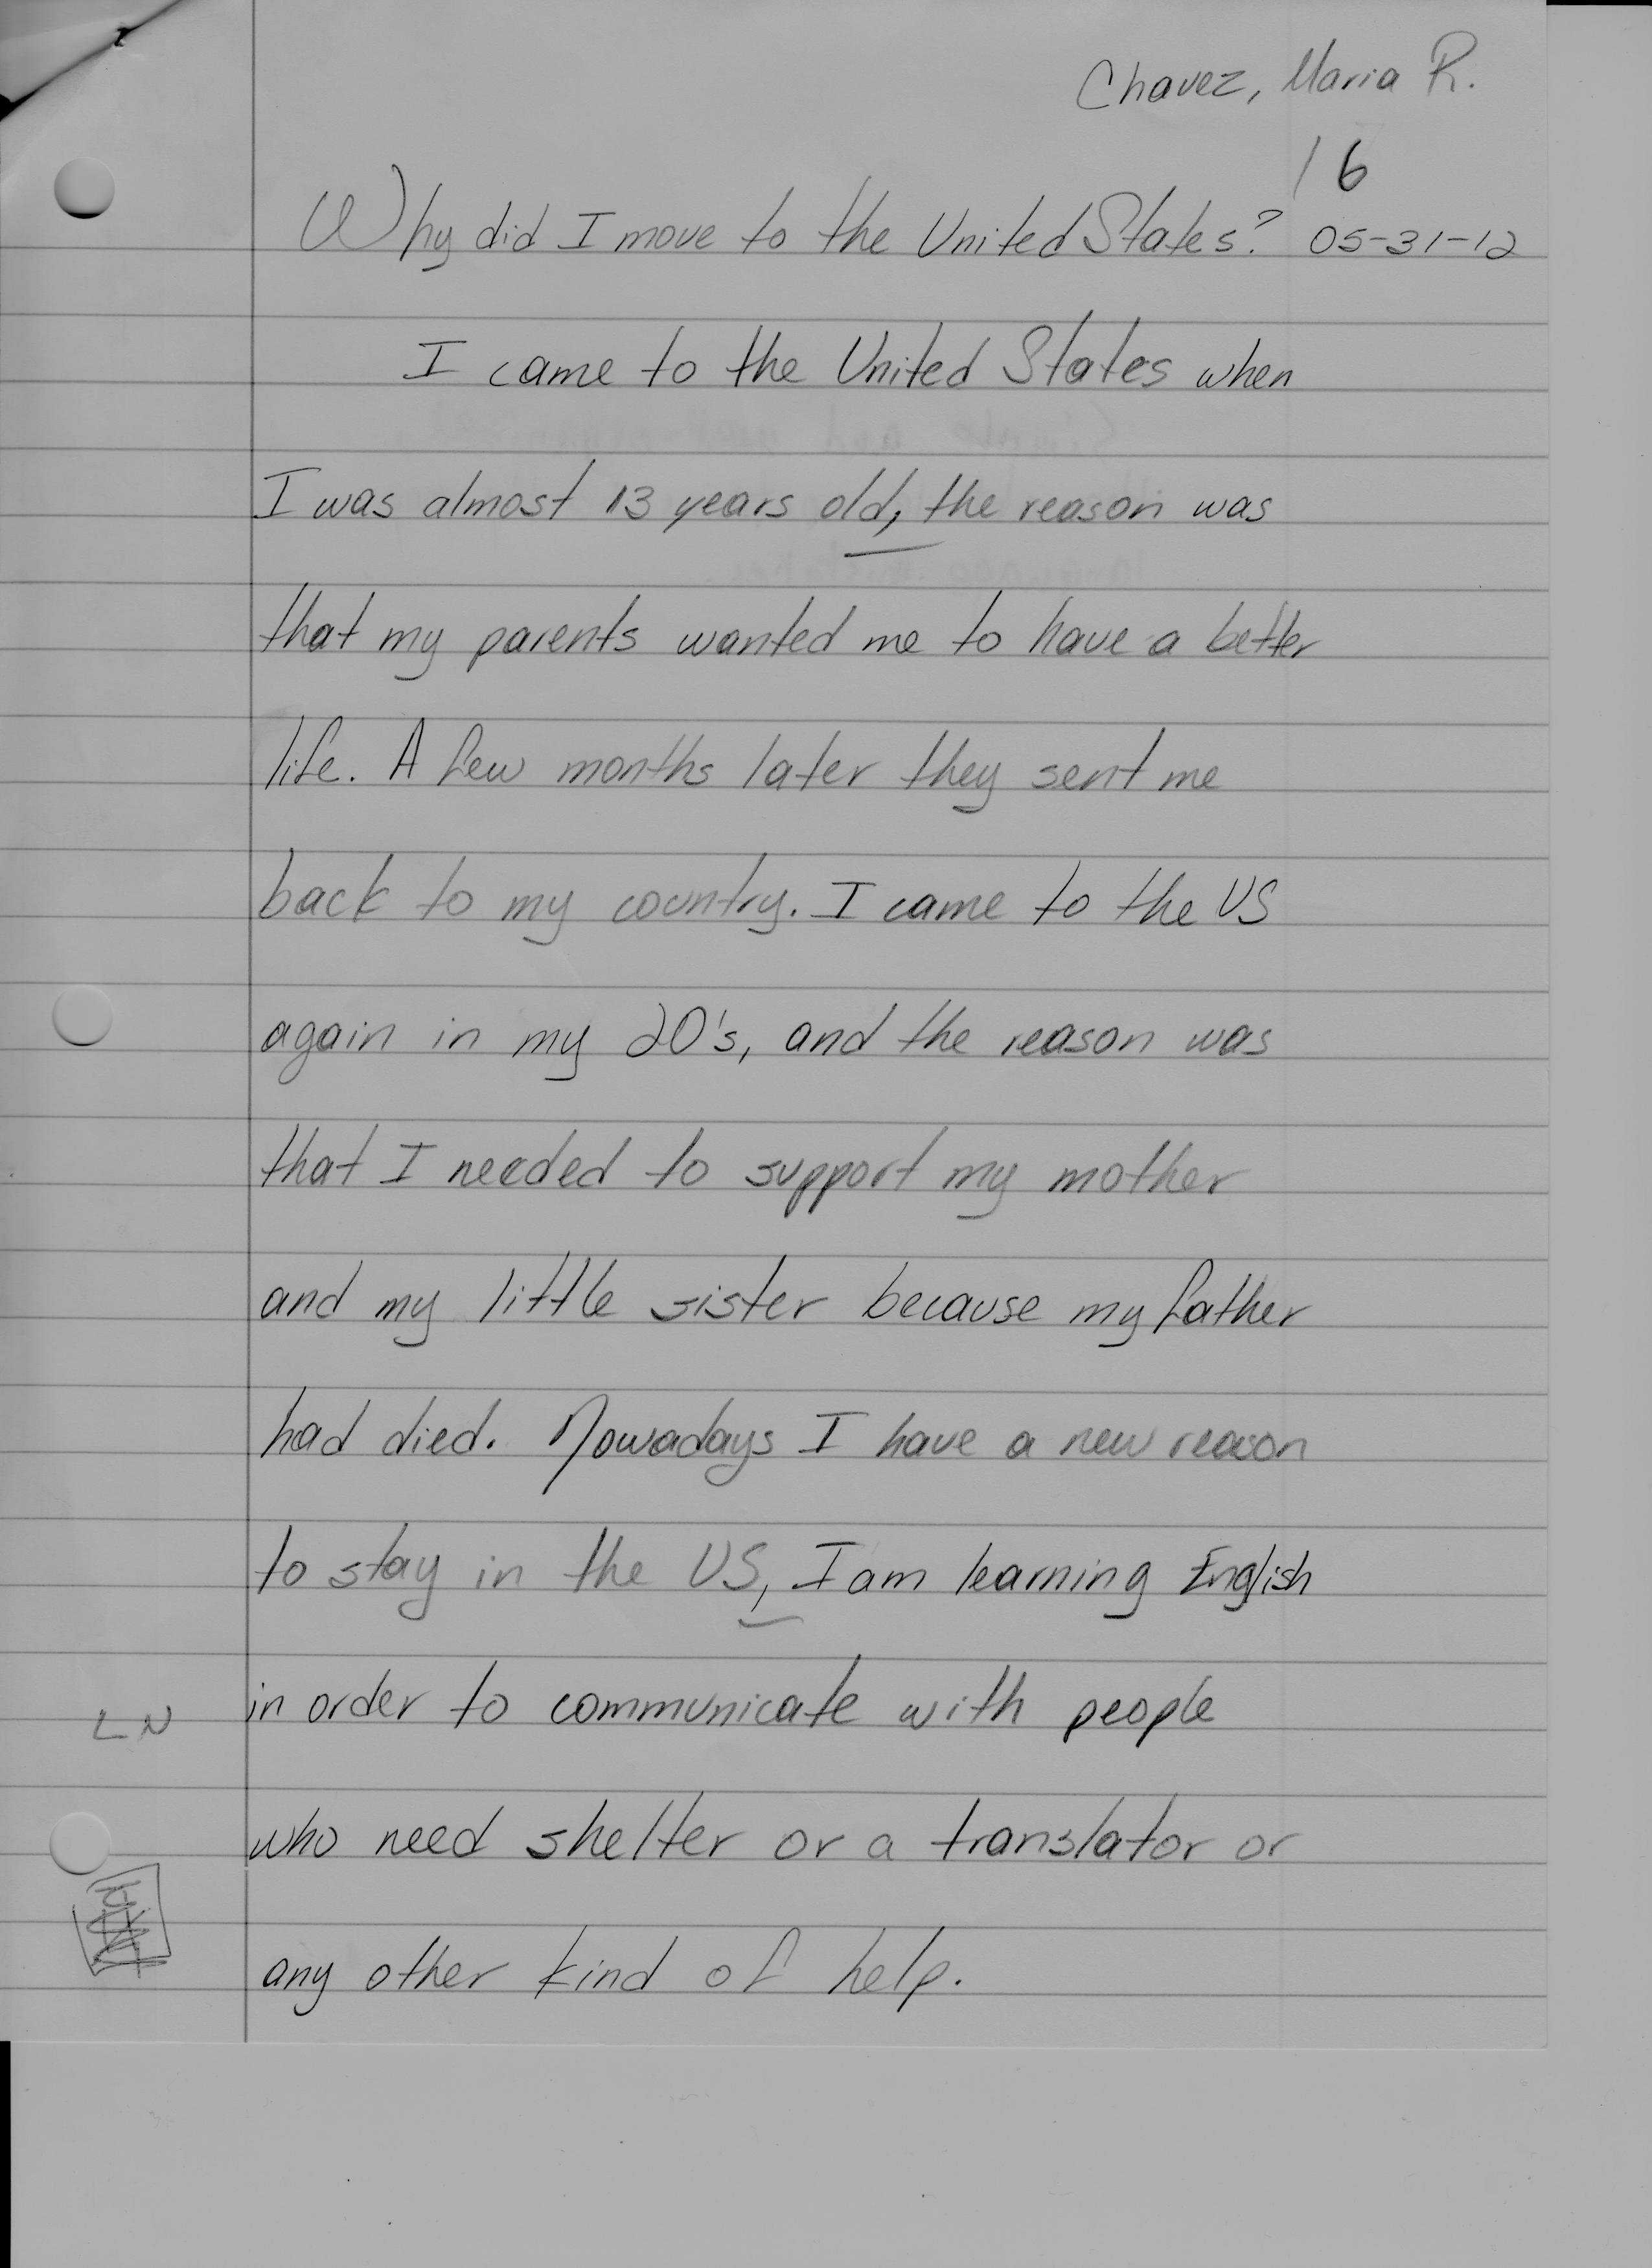 Chavez, Maria R.
16
Why did I move to the United States? 05-31-12
I came to the United States when
I was almost 13 years old, the reason was
that my parents wanted me to have a better
life. A few months later they sent me
back to my country. I came to the US
again in my 20's, and the reason was
that I needed to support my mother
and my little sister because my father
had died. Nowadays I have a new reason
to stay in the US, I am learning English
in order to communicate with people
LN
who need shelter or a translator or
any other kind of help.